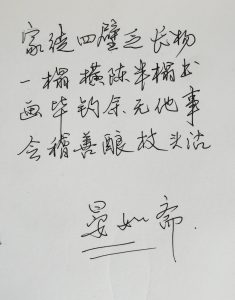 家徒四壁乏长物
一榻横陈半榻书
画毕钓余无他事
会稽善酿杖头沽
晏如斋